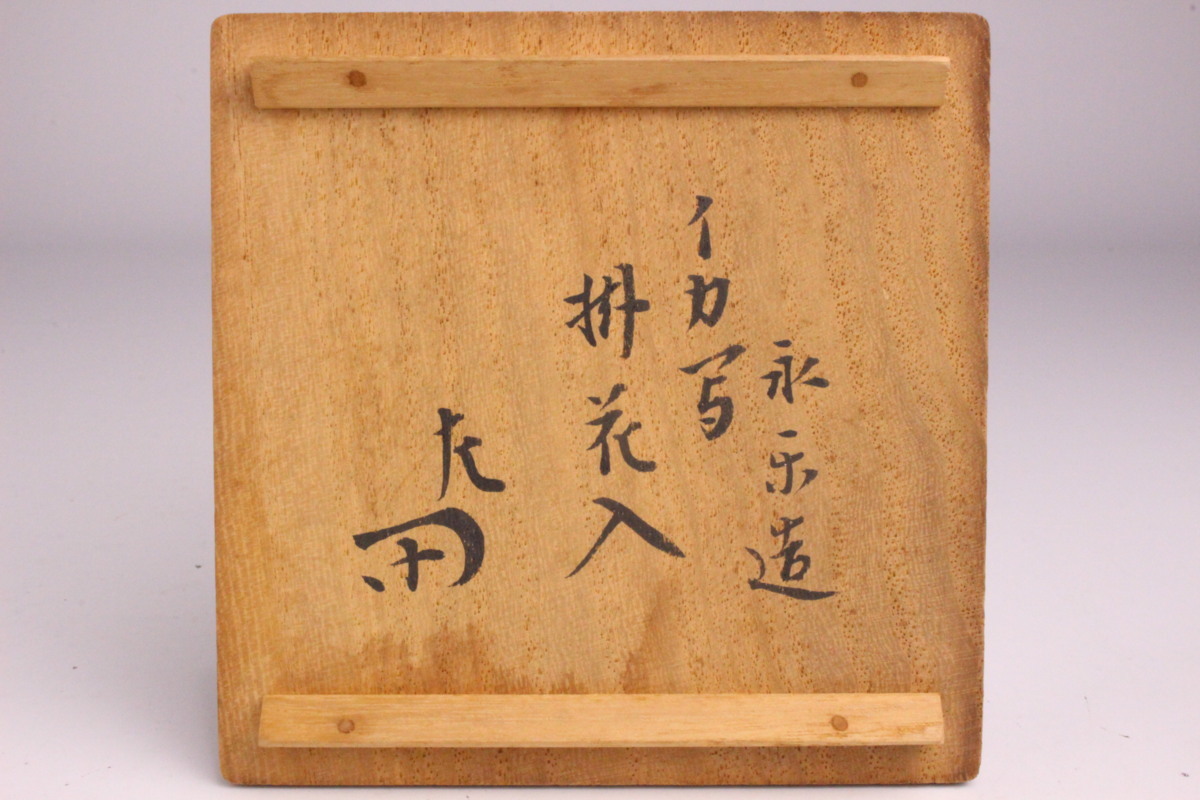 永楽造
イカ写
掛花入
左